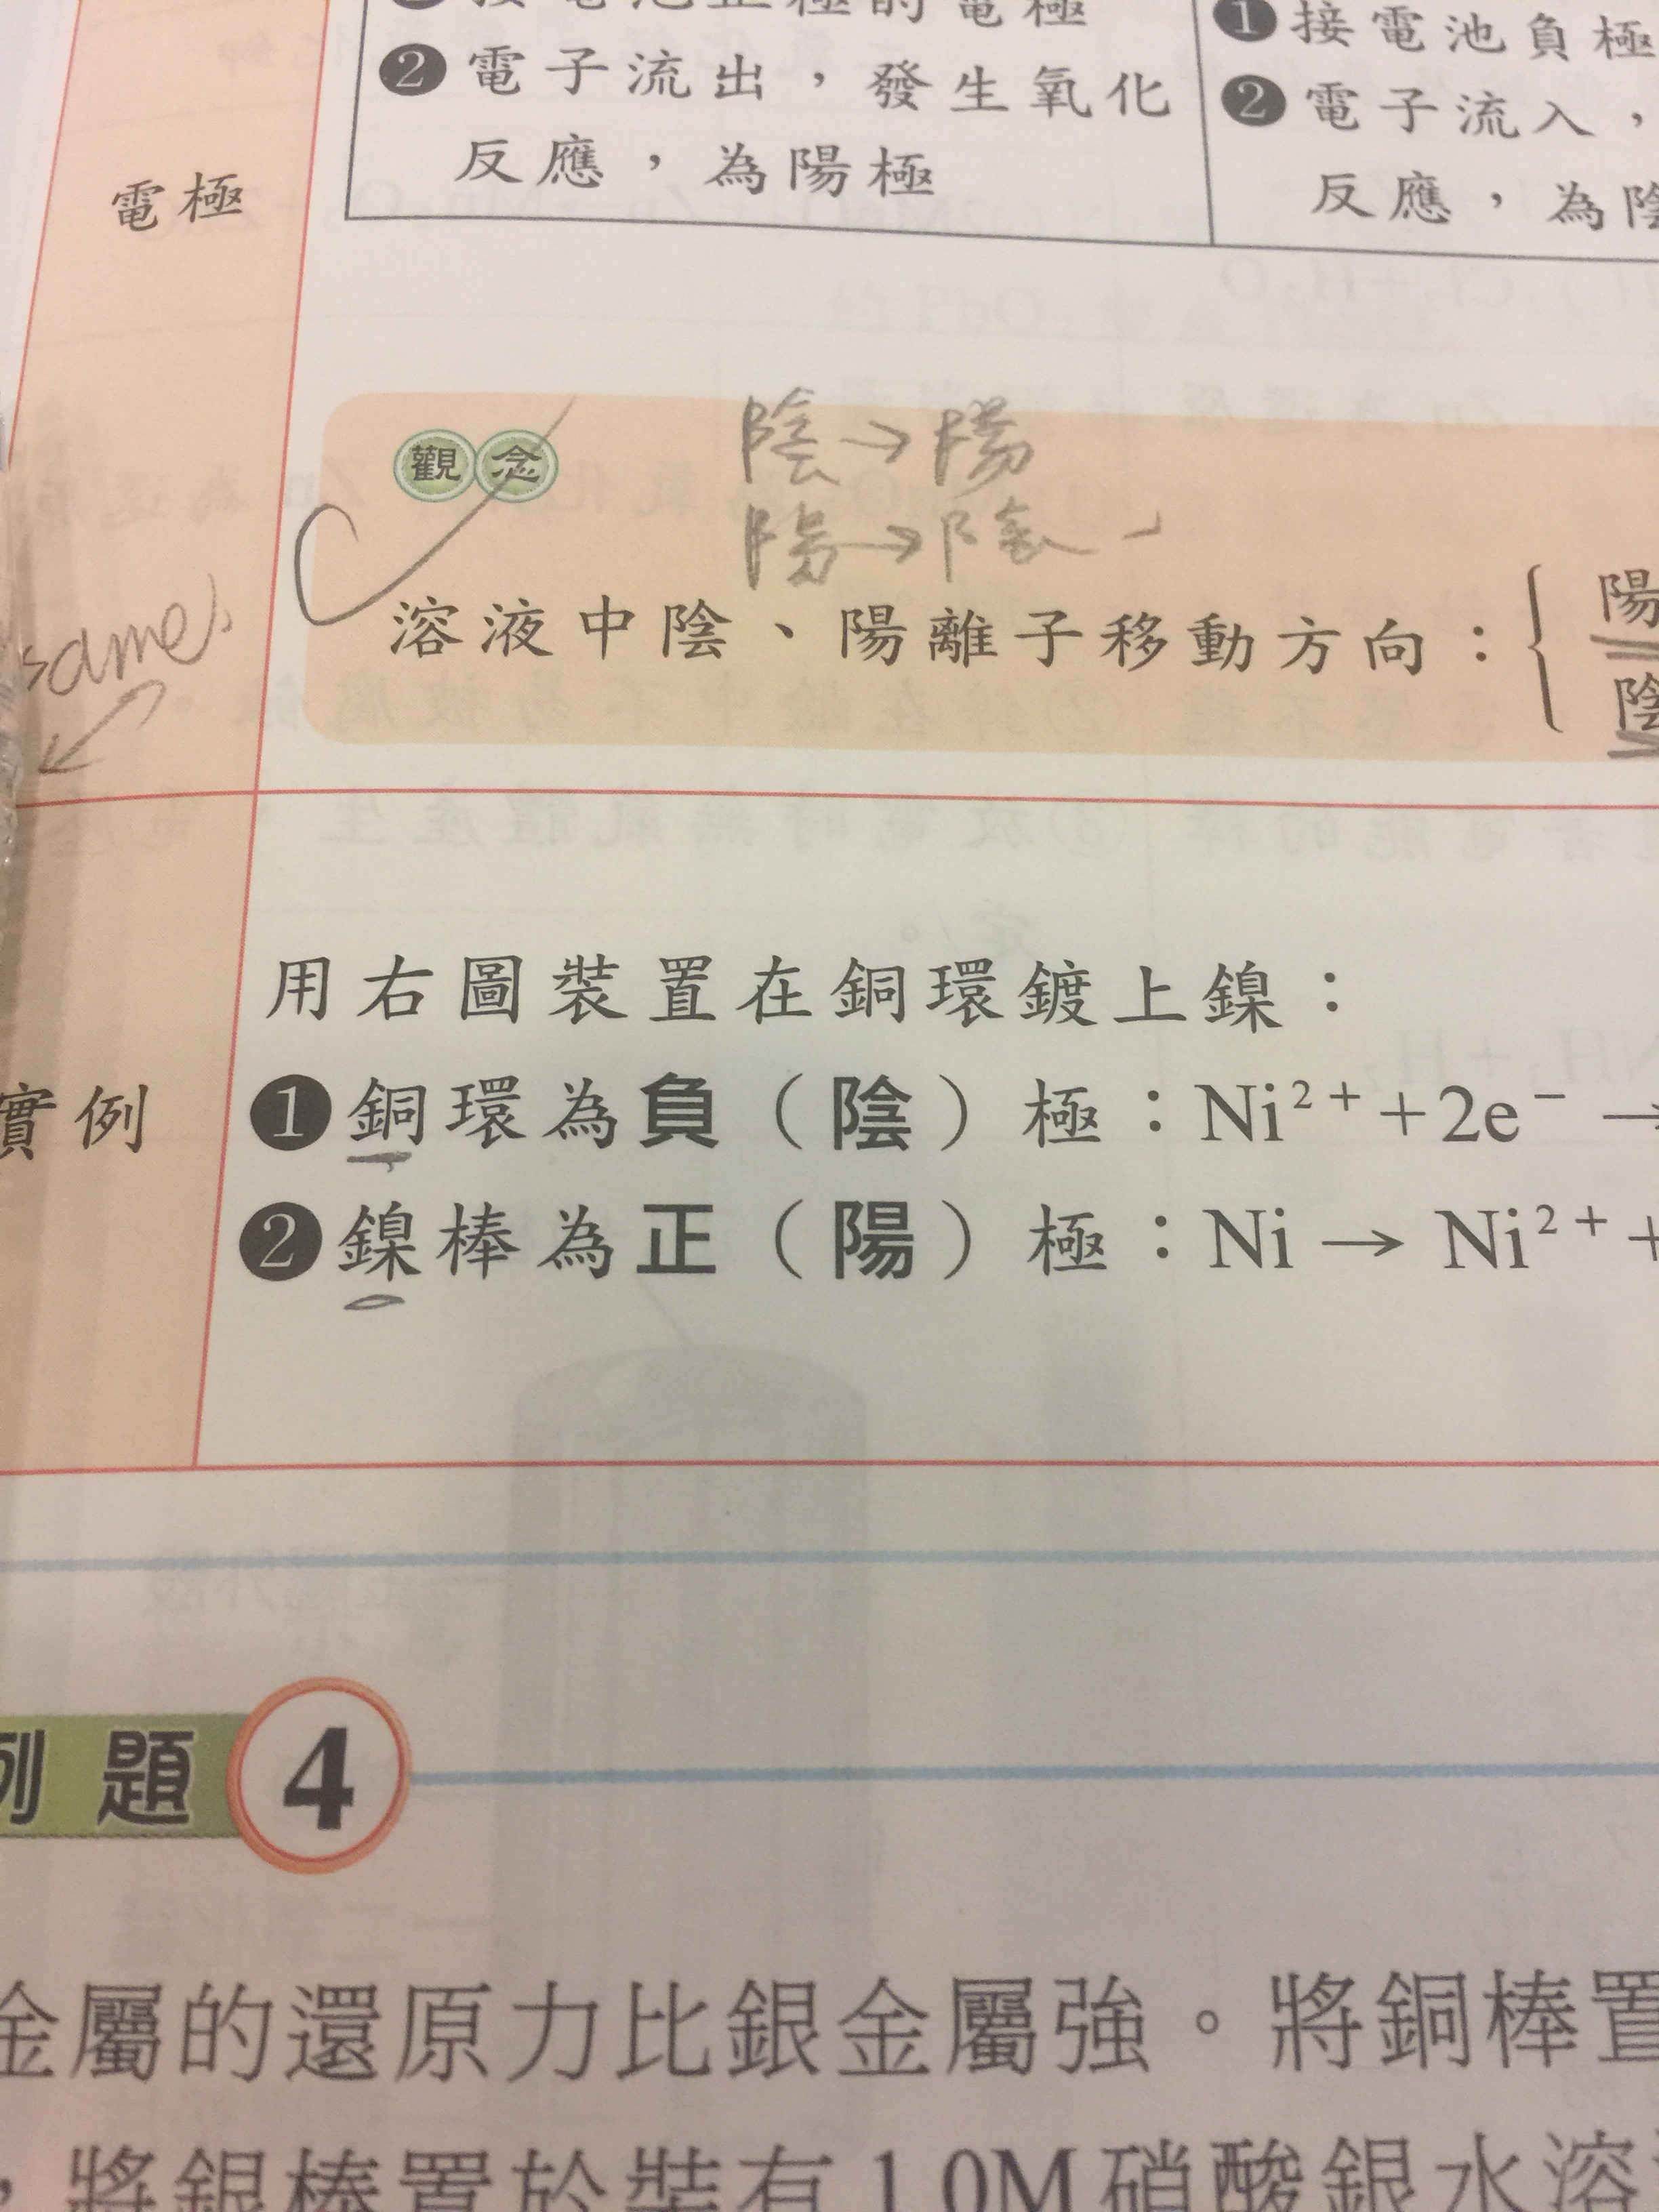 接電池正極的電極
❷電子流出，發生氧化
反應，為陽極
❶接電池負極
❷電子流入，
反應，為陰
電極
觀念
陰→陽
陽→陰
溶液中陰、陽離子移動方向：
陽
陰
same
用右圖裝置在銅環鍍上鎳：
實例
❶銅環為負（陰）極：Ni²⁺+2e⁻→
❷鎳棒為正（陽）極：Ni→Ni²⁺+
例題 4
金屬的還原力比銀金屬強。將銅棒置
，將銀棒置於裝有1.0M硝酸銀水溶